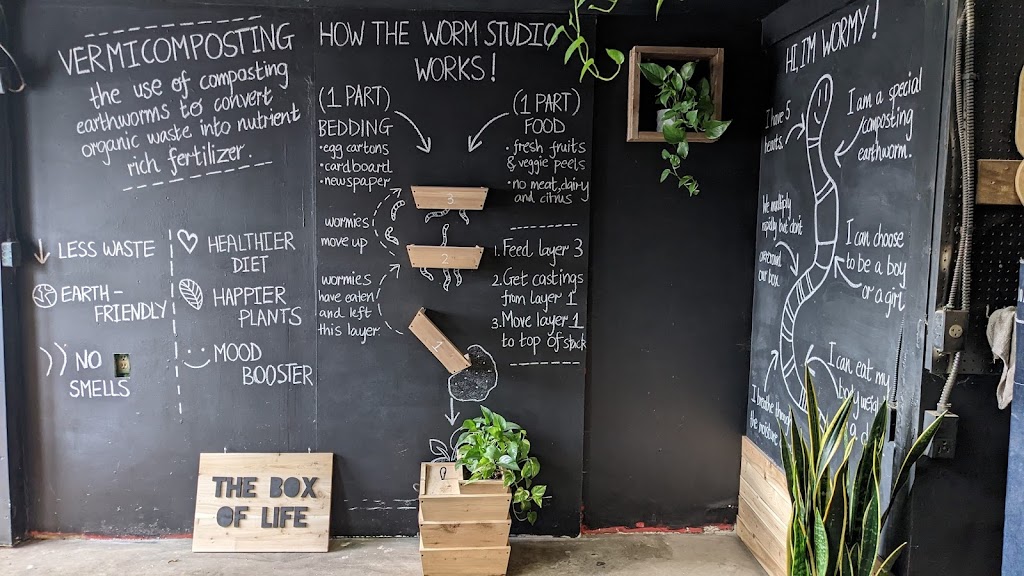 VERMICOMPOSTING
the use of composting
earthworms to convert
organic waste into nutrient
rich fertilizer.
LESS WASTE
EARTH-
FRIENDLY
NO
SMELLS
HEALTHIER
DIET
HAPPIER
PLANTS
MOOD
BOOSTER
THE BOX
OF LIFE
HOW THE WORM STUDIO
WORKS!
(1 PART)
BEDDING
• egg cartons
• cardboard
• newspaper
(1 PART)
FOOD
• fresh fruits
& veggie peels
• no meat, dairy
and citrus
3
2
1
wormies
move up
wormies
have eaten
and left
this layer
1. Feed layer 3
2. Get castings
from layer 1
3. Move layer 1
to top of stack
HI, I'M WORMY!
I have 5
hearts.
I am a special
composting
earthworm.
We multiply
rapidly but don't
overcrowd
our box
I can choose
to be a boy
or a girl
I can eat my
body weight
I breathe through
the moisture